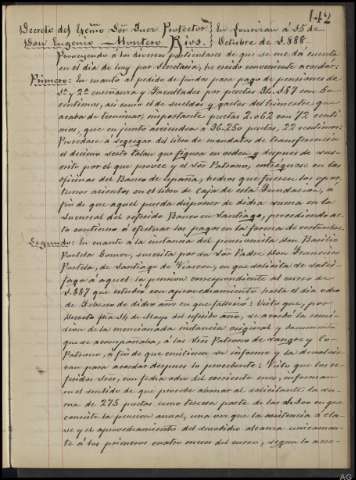 142
Decreto del Excmo Sor Juez Protector } En Lourizan á 15 de
Don Eugenio Montero Rios. } Octubre de 1.888.
Proveyendo á los diversos particulares de que se me dá cuenta
en el dia de hoy por Secretaría, he venido conveniente acordar:
Primero: En cuanto al pedido de fondos para pago de pensiones de
1ª, 2ª enseñanza y Facultades por pesetas 34.187 con 50
céntimos, así como el de sueldos y gastos del trimestre que
acaba de terminar, importante pesetas 2.062 con 72 cénti-
mos, que en junto ascienden á 36.250 pesetas, 22 céntimos:
Procédase á segregar del libro de mandatos de transferencia
el décimo sexto talon que figura en orden y despues de sus-
crito por el que provee y el Sor Patrono, entréguese en las
oficinas del Banco de España, hechos que fuesen los opor-
tunos asientos en el libro de caja de esta Fundacion, á
fin de que aquel pueda disponer de dicha suma en la
Sucursal del referido Banco en Santiago, procediendo de
lo contrario á efectuar los pagos en la forma de costumbre.
Segundo: En cuanto á la instancia del pensionista Don Basilio
Puebla, suscrita por su Sor Padre Don Francisco
Puebla, de Santiago de, en que solicita se satis-
faga á aquel la pension correspondiente al curso de
1.887 que estudió con aprovechamiento hasta el dia ocho
de Febrero de dicho año en que falleció: Visto que, por
Decreto fha 14 de Mayo del referido año, se acordó la remi-
sion de la mencionada instancia original y documento
que se acompañaba, á los Sres Patronos de Sangre y Co-
Patrono, á fin de que emitiesen su informe y la devolvie-
ran para acordar despues lo procedente: Visto que los re-
feridos Sres, con fecha ocho del corriente mes, informaron
en el sentido de que procede abonar al solicitante la su-
ma de 275 pesetas como tercera parte de las en que
consiste la pension anual, una vez que la asistencia á cla-
se y el aprovechamiento del susodicho alcanza unicamen-
te á los primeros cuatro meses del curso, segun lo acre-